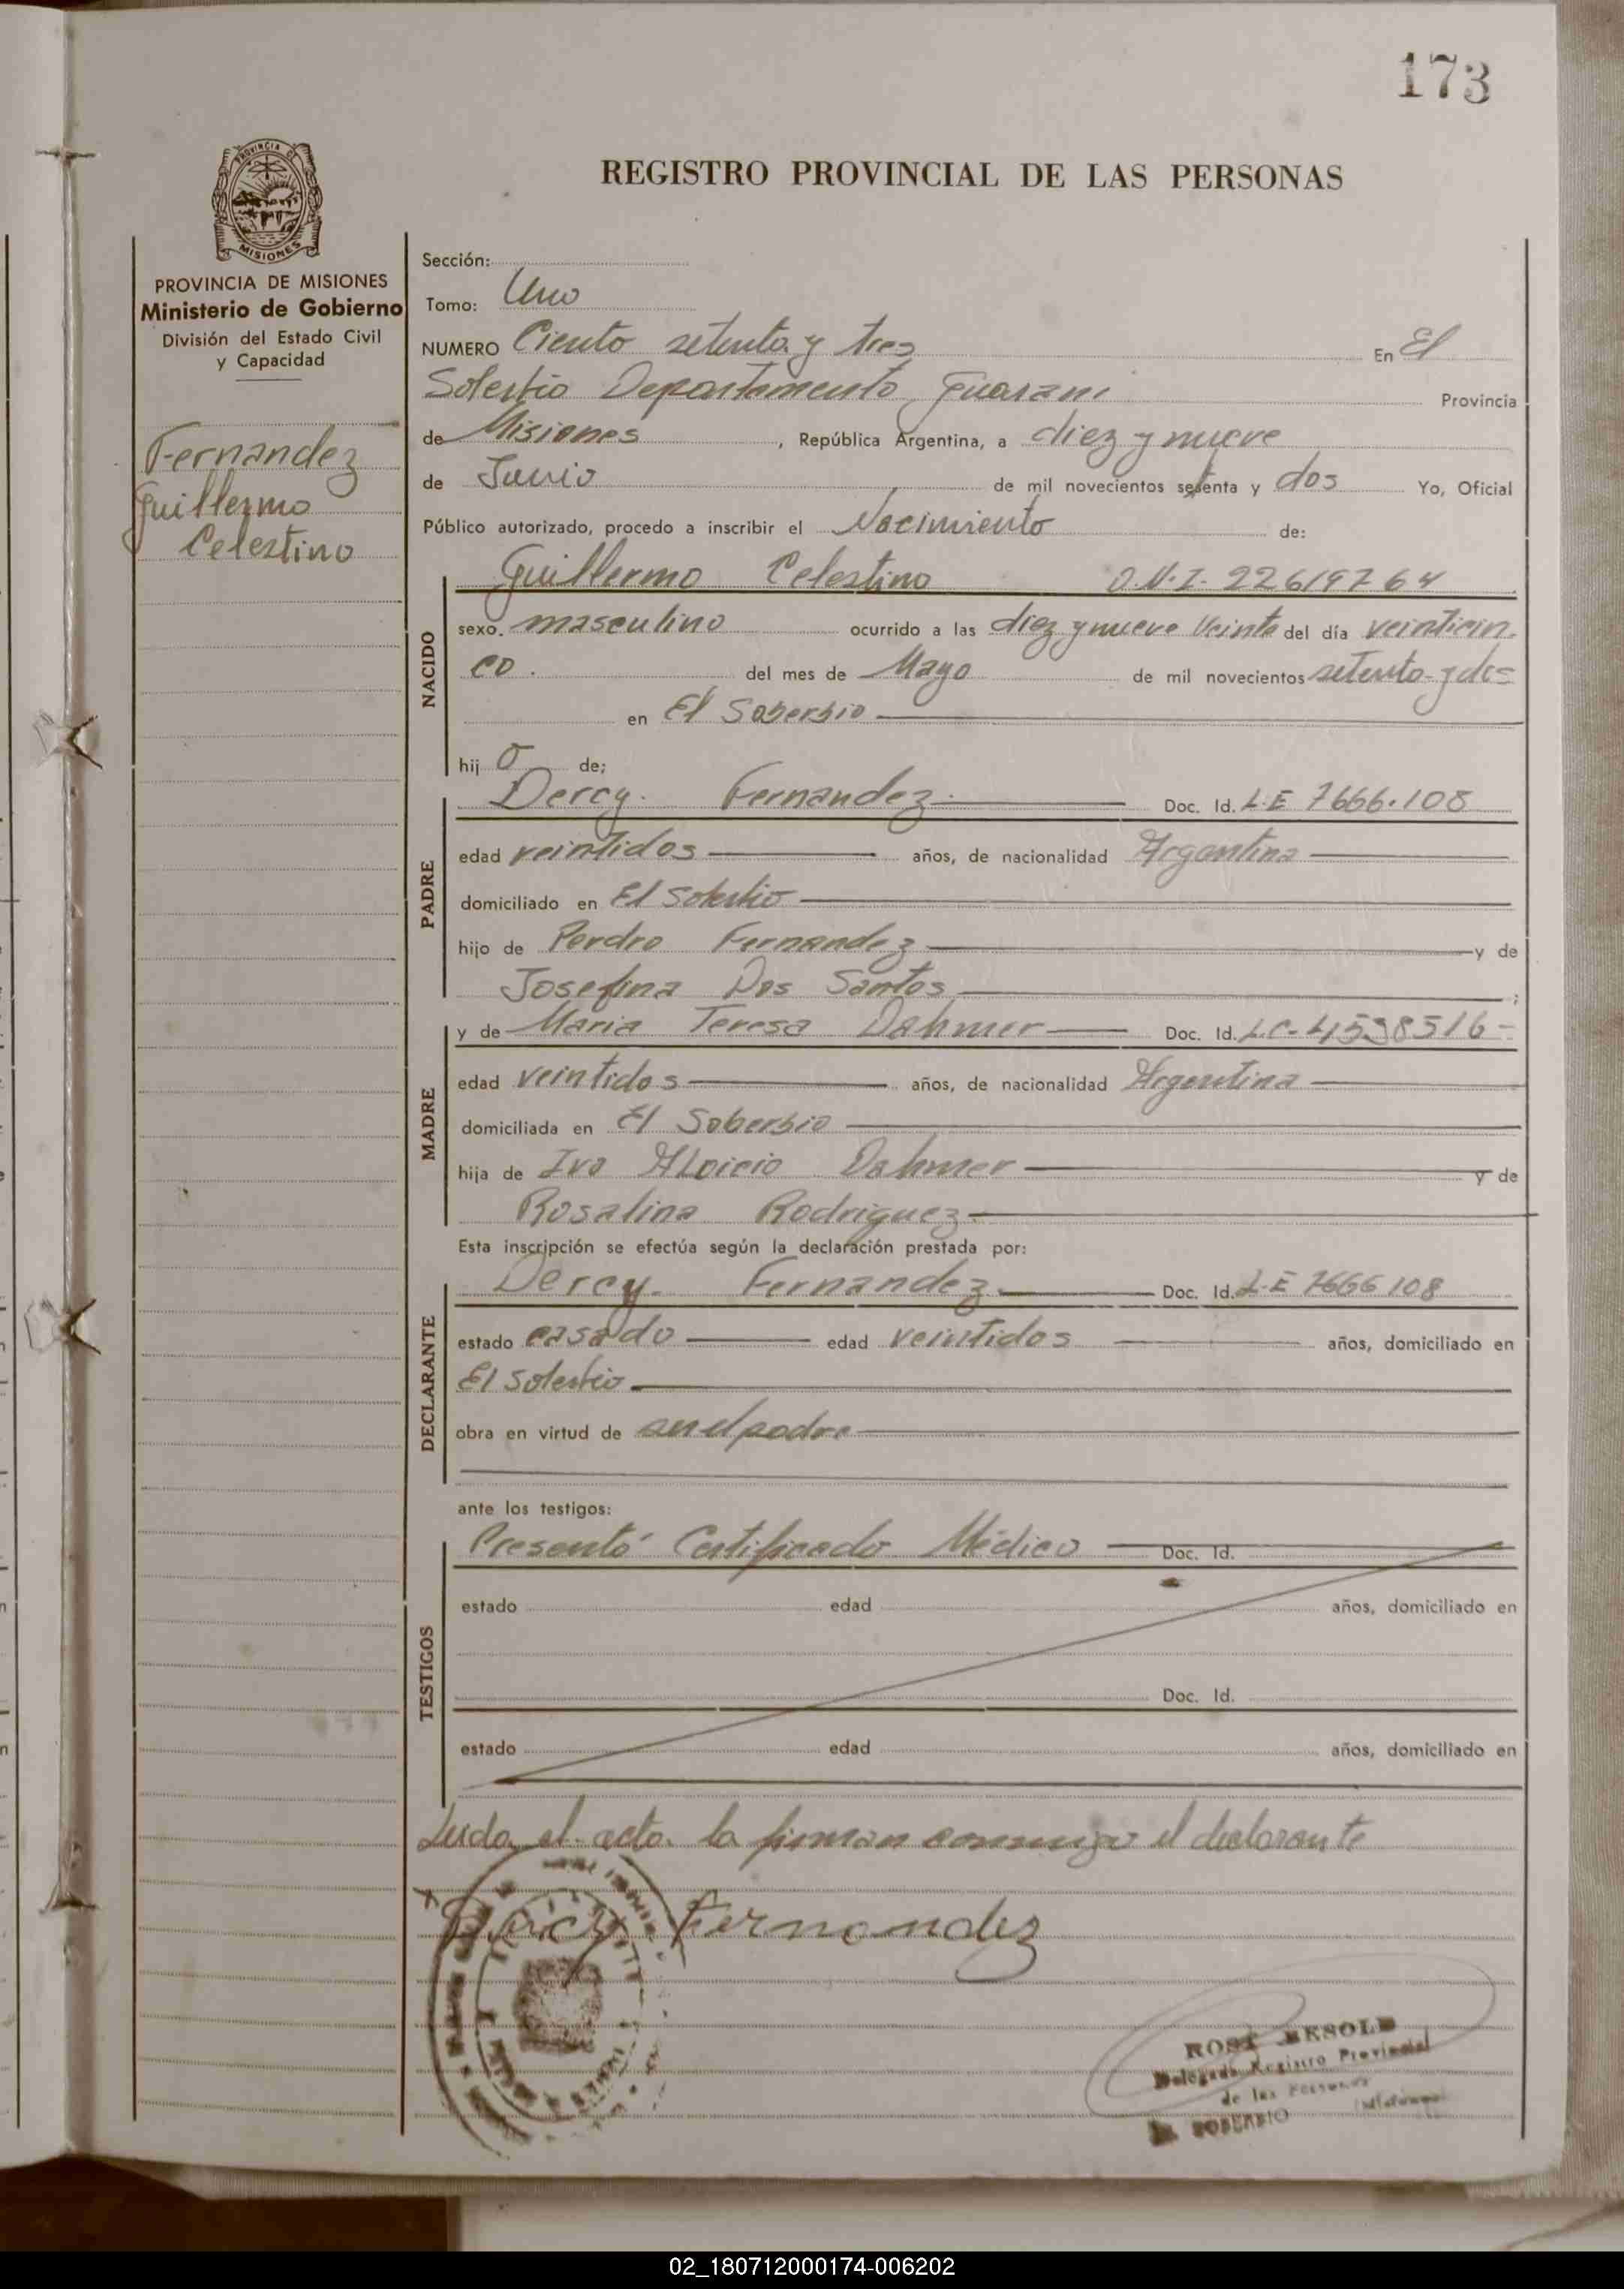 173
REGISTRO PROVINCIAL DE LAS PERSONAS
PROVINCIA DE
MISIONES
PROVINCIA DE MISIONES
Ministerio de Gobierno
División del Estado Civil
y Capacidad
Fernandez
Guillermo
Celestino
Sección:
Tomo: Uno
NUMERO Ciento setenta y tres En El
Soberbio Departamento Guarani Provincia
de Misiones, República Argentina, a diez y nueve
de Junio de mil novecientos setenta y dos Yo, Oficial
Público autorizado, procedo a inscribir el Nacimiento de:
NACIDO
Guillermo Celestino D.N.I. 22619764
sexo. masculino ocurrido a las diez y nueve Veinte del día veinticin-
co. del mes de Mayo de mil novecientos setenta y dos
en El Soberbio
hij o de;
PADRE
Dercy Fernandez Doc. Id. L.E 7666.108
edad veintidos años, de nacionalidad Argentina
domiciliado en El Soberbio
hijo de Perdro Fernandez y de
Josefina Dos Santos ;
MADRE
y de Maria Teresa Dahmer Doc. Id. L.C-4598516-
edad veintidos años, de nacionalidad Argentina
domiciliada en El Soberbio
hija de Ivo ALoicio Dahmer y de
Rosalina Rodriguez
Esta inscripción se efectúa según la declaración prestada por:
DECLARANTE
Dercy. Fernandez Doc. Id. L.E 7666108
estado casado edad veintidos años, domiciliado en
El Soberbio
obra en virtud de ser el padre
ante los testigos:
TESTIGOS
Presentó Certificado Médico Doc. Id.
estado edad años, domiciliado en
Doc. Id.
estado edad años, domiciliado en
Leida el acta la firman conmigo el declarante
x Dercy Fernandez
Delegado Registro Provincial
de las Personas
SOBERBIO
02_180712000174-006202